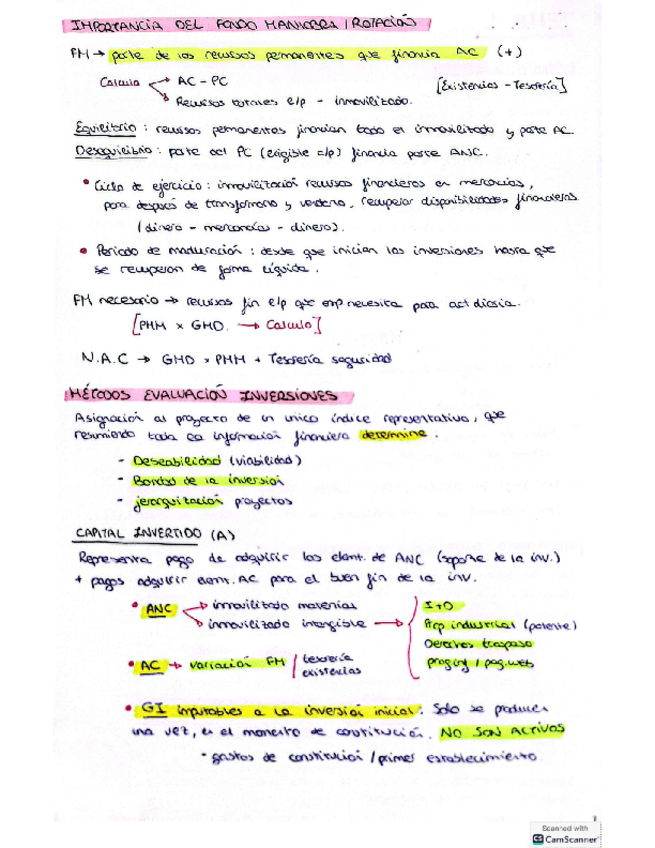 IMPORTANCIA DEL FONDO MANIOBRA / ROTACIÓN
FM → parte de los recursos permanentes que financia AC (+)
Calculo → AC - PC [Existencias - Tesorería]
→ Recursos totales e/p - inmovilizado.
Equilibrio : recursos permanentes financian todo el inmovilizado y parte AC.
Desequilibrio : parte del PC (exigible c/p) financia parte ANC.
• Ciclo de ejercicio : inmovilización recursos financieros en mercancías,
para después de transformarlo y venderlo, recuperar disponibilidades financieras
(dinero - mercancías - dinero).
• Periodo de maduración : desde que inician las inversiones hasta que
se recuperan de forma líquida.
FM necesario → recursos fin e/p que emp necesita para act diaria.
[PMM × GMD. → Calculo]
N.A.C → GMD × PMM + Tesorería seguridad
MÉTODOS EVALUACIÓN INVERSIONES
Asignación al proyecto de un unico índice representativo, que
resumiendo toda la información financiera determine.
- Deseabilidad (viabilidad)
- Bondad de la inversión
- jerarquización proyectos
CAPITAL INVERTIDO (A)
Representa pago de adquirir los elemt. de ANC (soporte de la inv.)
+ pagos adquirir elem. AC para el buen fin de la inv.
• ANC → inmovilizado material
→ inmovilizado intangible →
I+D
Prp industrial (patente)
Derechos traspaso
prog inf / pag. web
• AC → variación FM / tesorería
existencias
• GI imputables a la inversión inicial : Solo se producen
una vez, en el momento de constitución. NO SON ACTIVOS
- gastos de constitución / primer establecimiento.
Scanned with
CS CamScanner